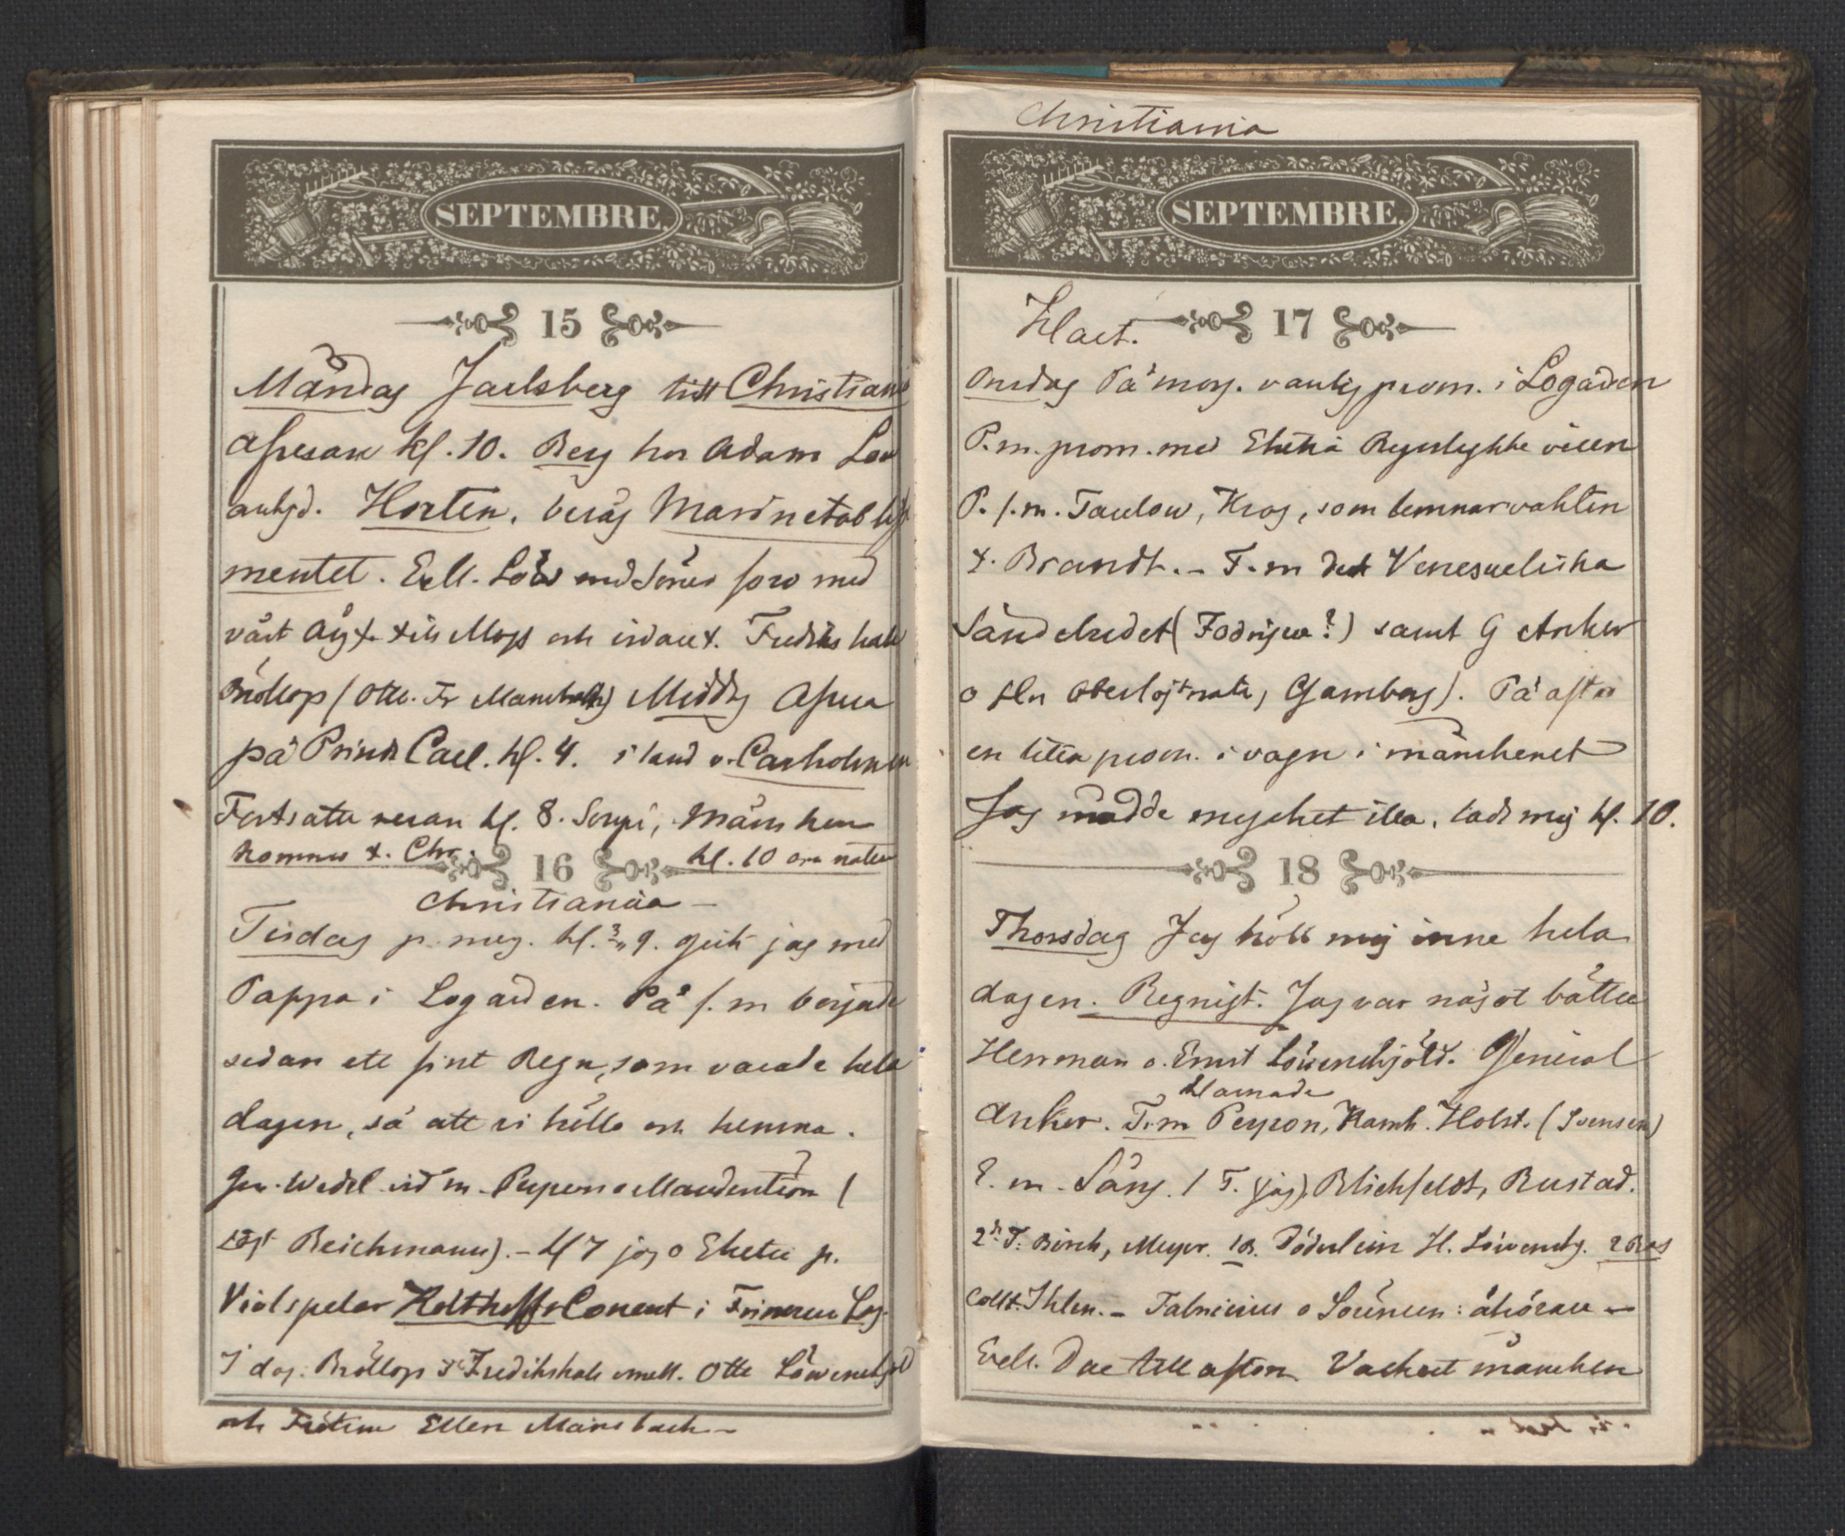 SEPTEMBRE.
15
Måndag Jarlsberg till Christiania
afresan kl. 10. Berg hos Adam Löv
Horten, besåg Marinetablis
mentet. Exll. Löv med Söner foro med
vårt till Moss och
Bröllop (Otto. Fr Mansbach) Middag
på Prins Carl. kl. 4. i land v. Carholmen
Fortsatte resan kl. 8. Soupé, Månsken
kommo t. Chr. kl. 10 om natten
16
Christiania -
Tisdag p. mrg. kl. 9. gick jag med
Pappa i Logården. På f.m började
sedan ett fint Regn, som varade hela
dagen, så att vi höllo oss hemma.
Gen. Wedel vid m. Peyron o Mandenström (
Reichmann). - kl 7 jag o Eketre p.
Violspelar Holthoffs Consert i Frimurare Log.
I dag: Bröllop Fredrikshall emell. Otto Lövenskjold
och Fröken Ellen Mansbach -
Christiania
SEPTEMBRE.
Klart.
17
Onsdag På morg. vanlig prom. i Logården
P.m. prom. med
P. f.m. Taulow, Krog, som lemnar vakten
t. Brandt. - F.m det Venesueliska
Sändebudet ( ?) samt G Anker
o Gamborg). På afton
en liten prom. i vagn i månskenet
Jag mådde mycket illa, lade mig kl. 10.
18
Thorsdag Jag höll mig inne hela
dagen. Regnigt. Jag var något bättre
Herrman o. Ernst Lövenskjöld. General
klarnade
Anker. F.m Peyron, Kamh. Holst. (Svensen)
E. m. Sång. 1 T. (jag), Blichfeldt, Rustad.
2dr T: Birch, Meyer. 1 B. Döderlein H. Lövensk. 2 Bas
Collet. Ihlen. - Fabricius o Sörensen: åhörare -
Exell. Due till afton. Vackert månsken